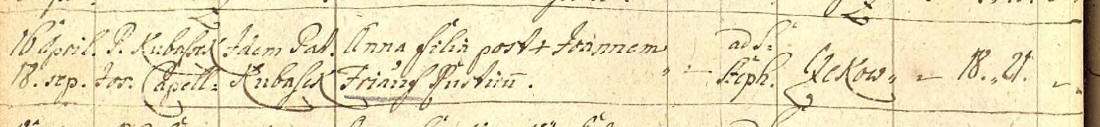 16 April. P. Kubasek Idem Pat. Anna filia post + Joannem ad S.
18. sep. Jos. Capell= Kubasek Friang Justin. „ – Steph. „ – 18. „ 21. „